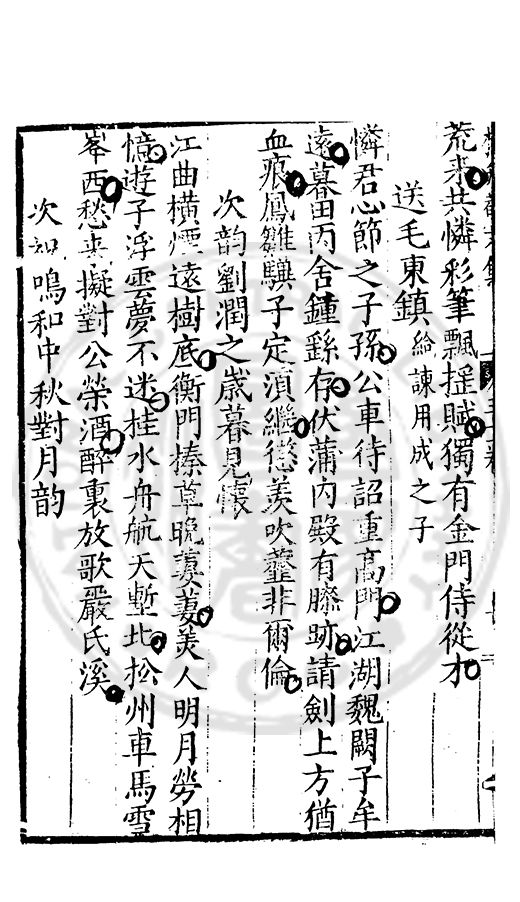 荒来共憐彩筆飄揺賦獨有金門侍從才
送毛東鎮給諫用成之子
憐君心節之子孫公車待詔重高門江湖魏闕子牟
遠暮雷丙舍鍾繇存伏蒲內殿有臙跡請劍上方猶
血痕鳳雛驥子定湏繼懲羨吹虀非爾倫
次韵劉潤之歲暮見懷
江曲橫煙遠樹底衡門榛草晚萋萋美人明月勞相
憶遊子浮雲夢不迷桂水舟航天塹北松州車馬雪
峯西愁来擬對公榮酒醉裏放歌嚴氏溪
次 鳴和中秋對月韵